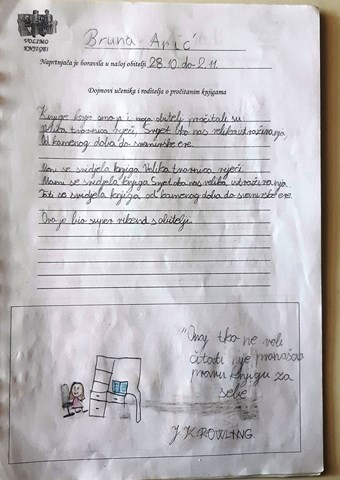 VOLIMO
KNJIGE!
Bruna Arić
Naprtnjača je boravila u našoj obitelji 28.10. do 2.11.
Dojmovi učenika i roditelja o pročitanim knjigama
Knjige koje smo ja i moja obitelj pročitale su
Velika tvornica riječi, Svijet oko nas velika istraživanja
Od kamenog doba do svemirske ere.
Meni se svidjela knjiga Velika tvornica riječi
Mami se svidjela knjiga Svijet oko nas velika istraživanja
Tati se svidjela knjiga od kamenog doba do svemirske ere.
Ovo je bio super vikend s obitelji.
"Onaj tko ne voli
čitati nije pronašao
pravu knjigu za
sebe"
J.K. ROWLING.